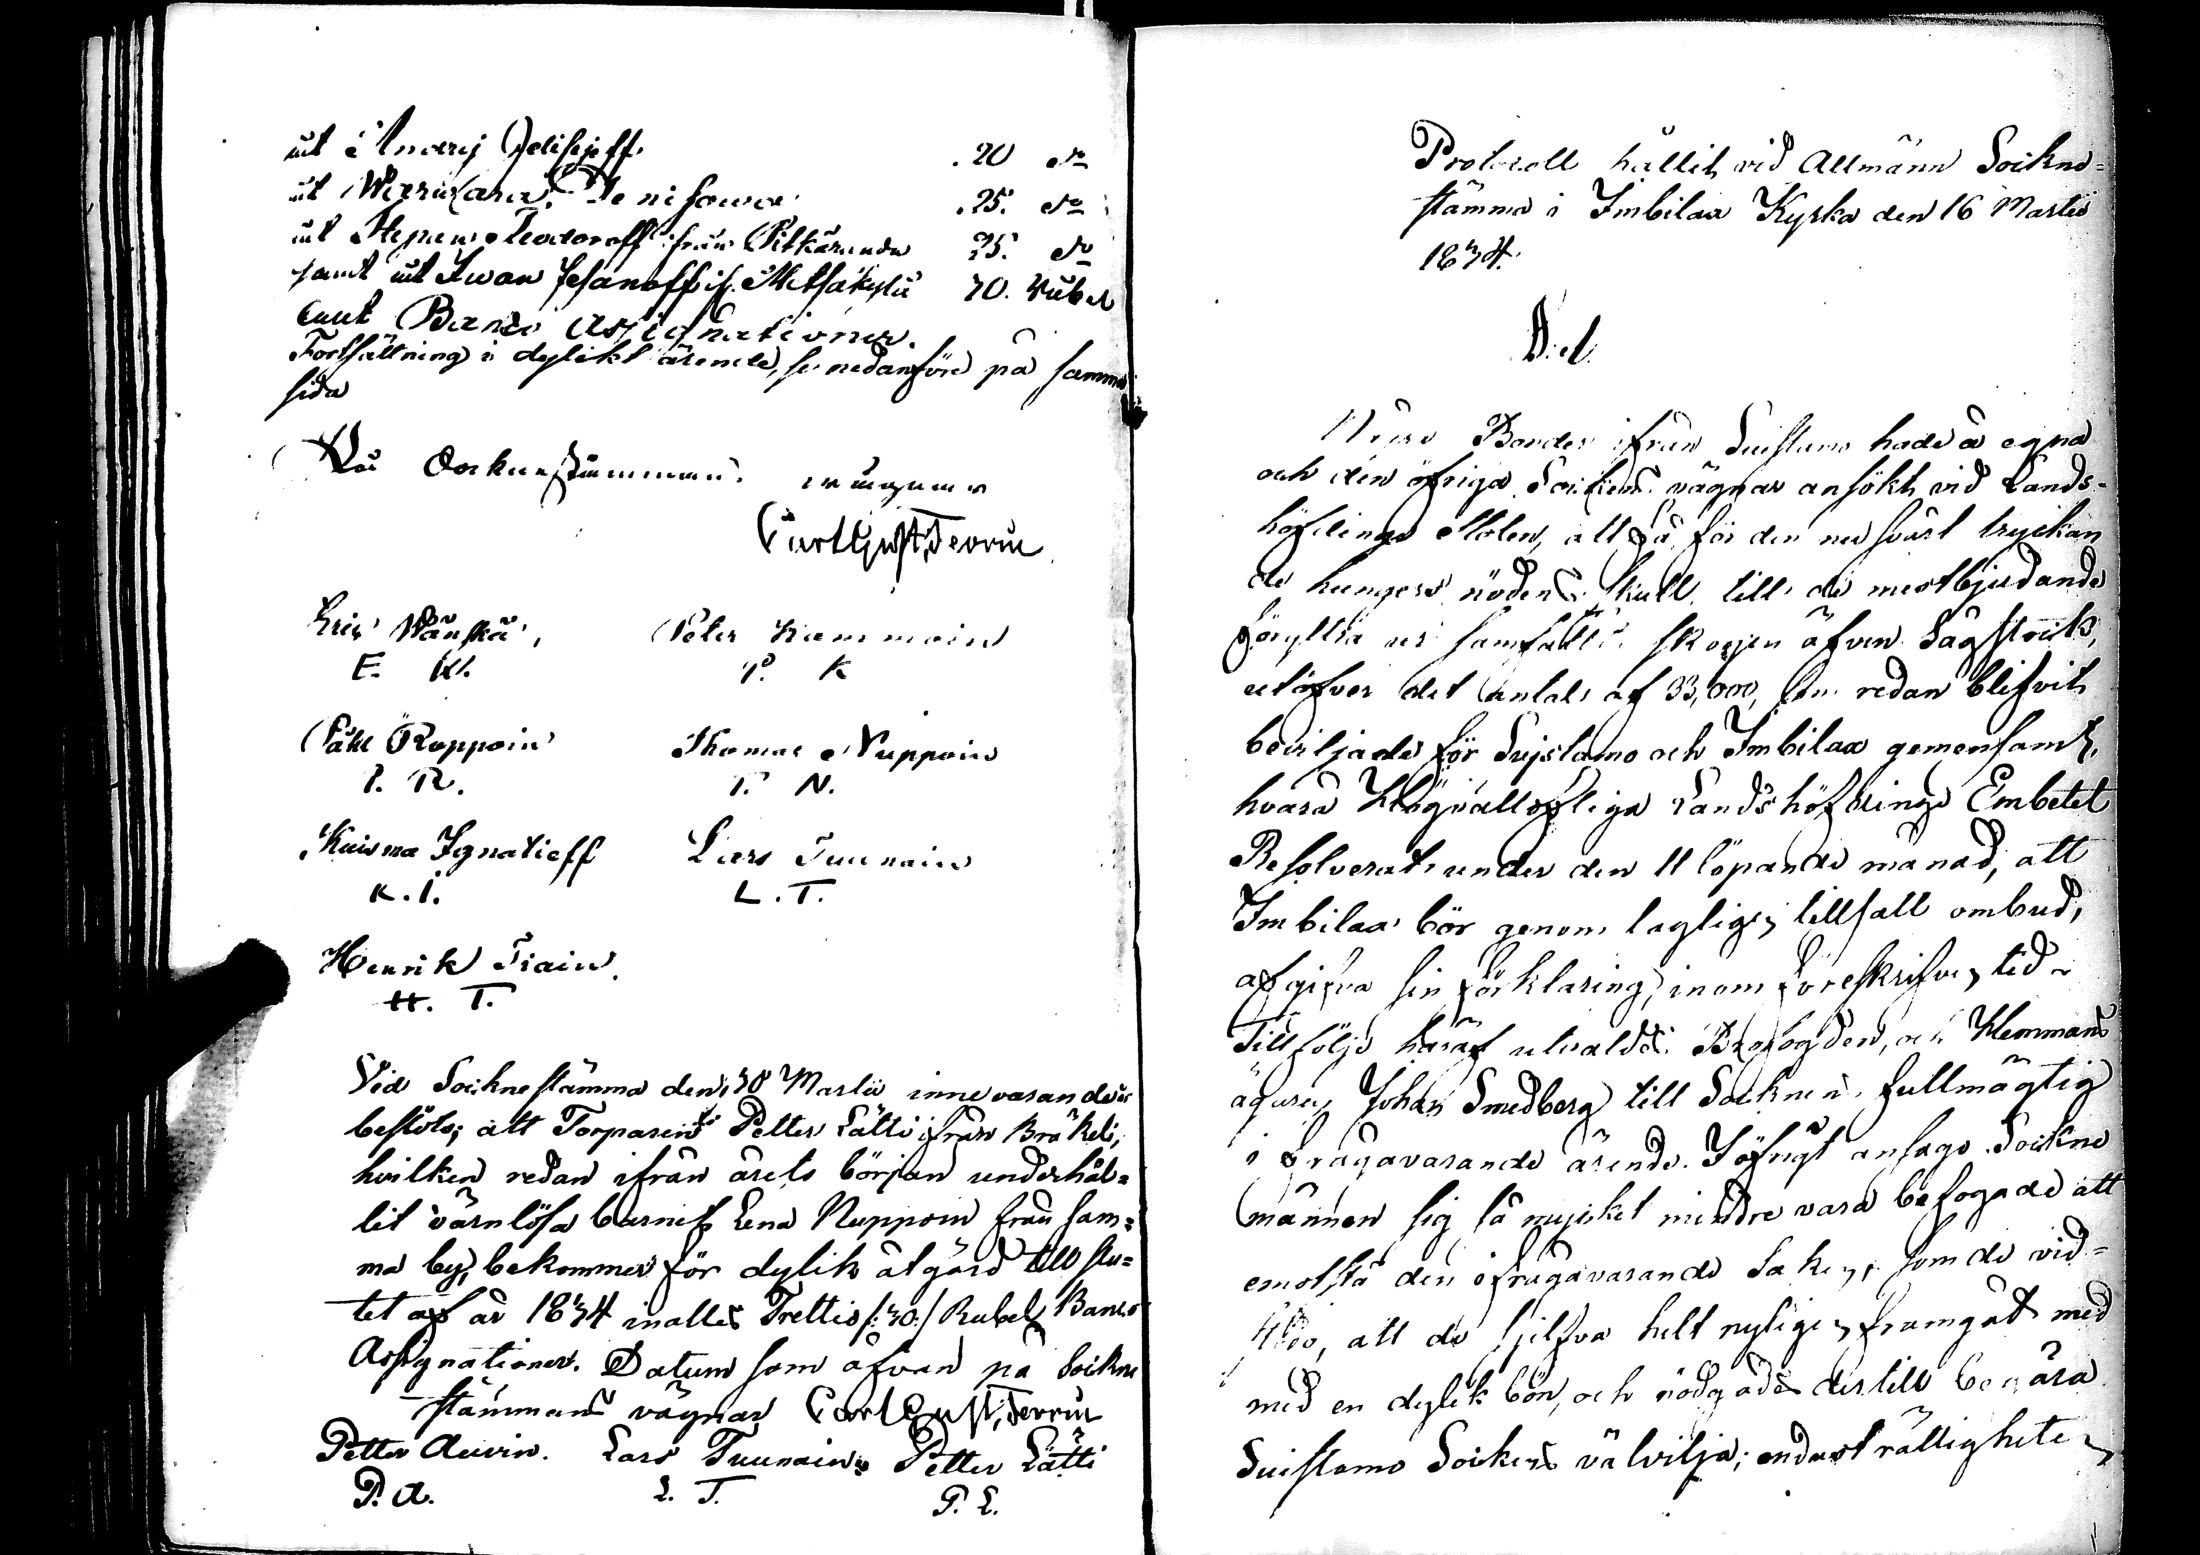 åt Andrej Jelisejeff. 20 d:o
åt Denisowa 25. d:o
åt Stepan Feodoroff från Pitkäranda 25. d:o
samt åt Iwan if. Metsäkylä 70. Rubel
allt Banco Assignationer.
Fortsättning i dylikt ärende, se nedanföre på samma
sida
På Sockenstämmans vägnar
Carl Gust. Ferrin
Eric Wänskä, Peter Hammoin
E. W. P. K
Påhl Roppoin Thomas Nuppoin
P. R. T. N.
Kuisma Ignatieff Lars Tuunain
K. I. L. T.
Henrik Tiain.
H. T.
Vid Sockne stämma den 30 Martii innevarande år
beslöts; att Torparen Petter Lätti ifrån Bräkeli,
hvilken redan ifrån årets början underhål-
lit värnlösa barnet Lena Nuppoin från sam-
ma by, bekommer för dylik åtgärd till slu-
tet af år 1834 inalles Trettio /:30:/ Rubel Banco
Assignationer. Datum som åfvan på Sockne
stämmans vägnar Carl Gust. Ferrin
Petter Auvin. Lars Tuunain Petter Lätti
P. A. L. T. P. L.
Protocoll hållit vid Allmänn Sockne-
stämma i Imbilax Kyrka den 16 Martii
1834.
S. d.
Några Bönder ifrån Suistamo hade å egna
och den öfriga Sockens vägnar ansökt vid Lands-
höfdinge Stolen, att få för den nu svårt tryckan
de hungers nödens skull till de mestbjudande
föryttra ur samfälte skogen äfven Sågstock,
utöfver det antal af 33,000, som redan blifvit
beviljade för Sujstamo och Imbilax gemensamt.
hvarå Högvällofliga Landshöfdinge Embetet
Resolverat under den 11 löpande månad, att
Imbilax bör genom laglige tillsatt ombud,
afgifva sin förklaring, inom föreskrifven tid
Till följe häraf utvaldes Brofogden, och Hemmans
ägaren Johan Smedberg till Socknens fullmägtig
i frågavarande ärende. I öfrigt ansågo Sockne
männen sig så mycket mindre vara befogade att
emotstå den ifrågavarande Saken, som de vid-
stå, att de sjelfva helt nyligen framgåt med
med en dylik bön, och nödgades dertill begära
Suistamo Sockens välvilja; endast rättigheten